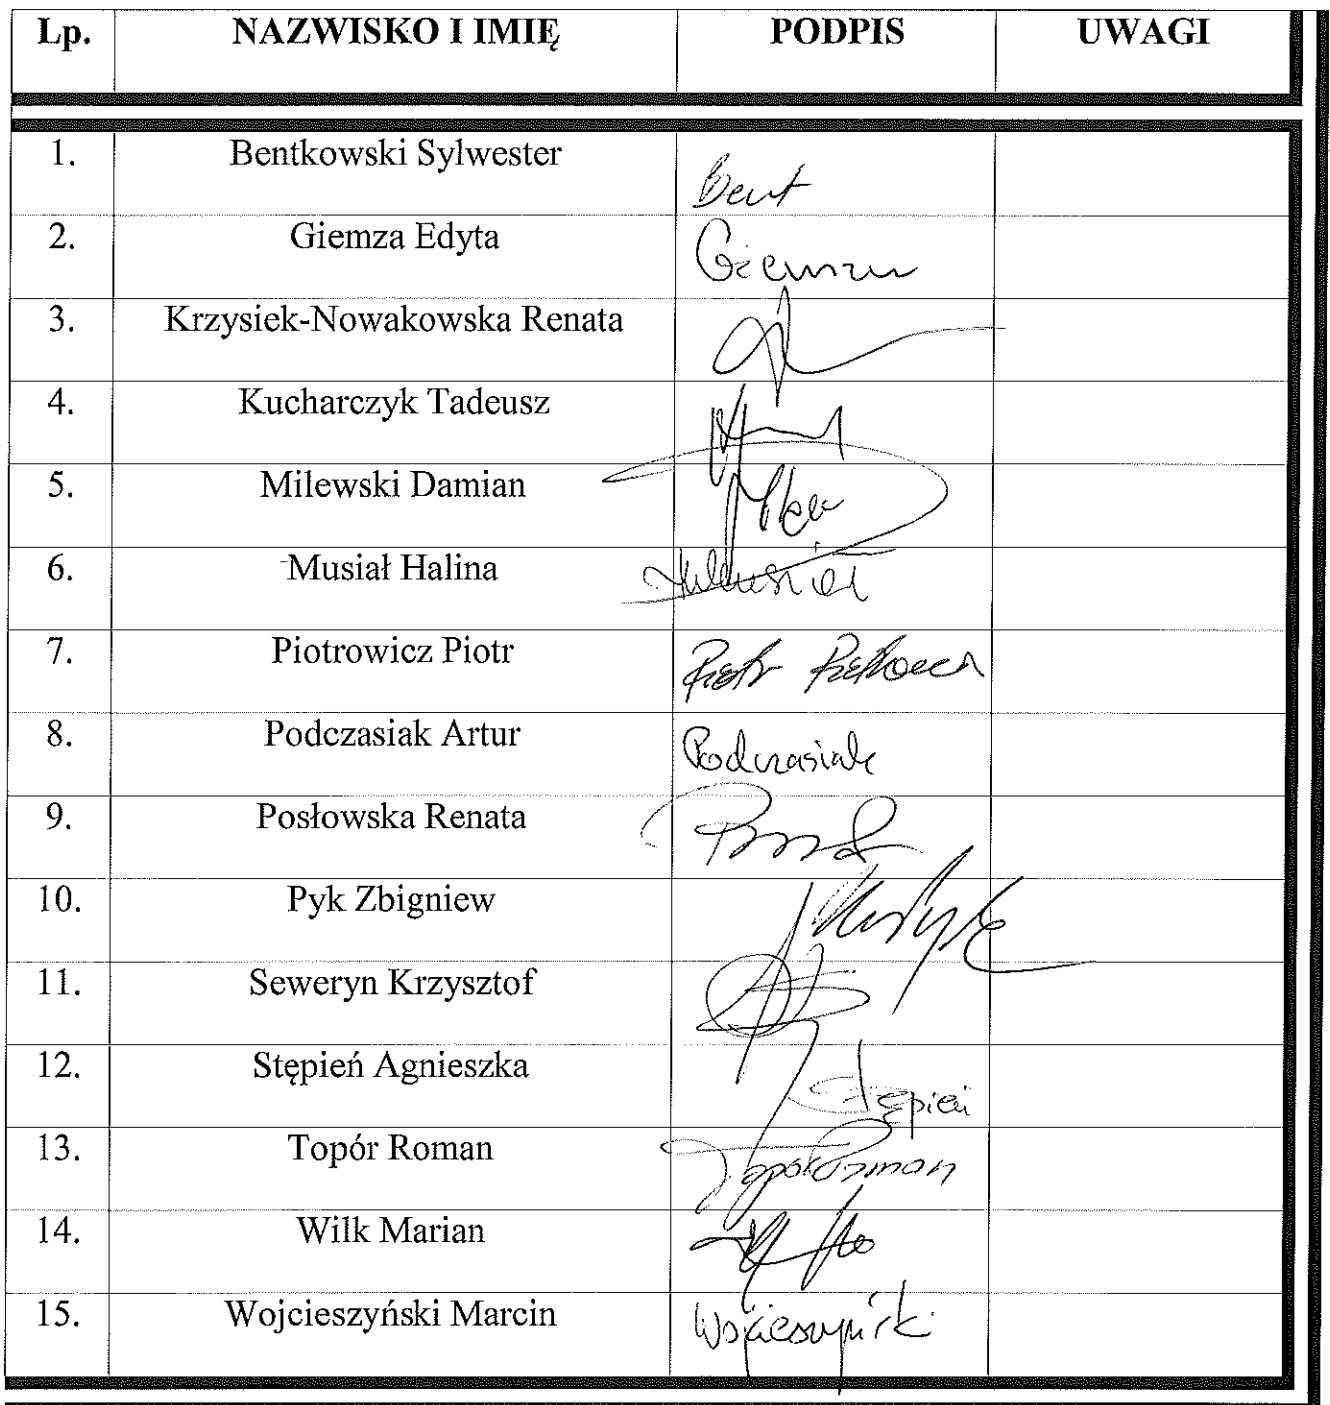 Lp. NAZWISKO I IMIĘ PODPIS UWAGI
1. Bentkowski Sylwester Bent
2. Giemza Edyta Giemza
3. Krzysiek-Nowakowska Renata
4. Kucharczyk Tadeusz
5. Milewski Damian
6. Musiał Halina Musiał
7. Piotrowicz Piotr Piotr
8. Podczasiak Artur Podczasiak
9. Posłowska Renata
10. Pyk Zbigniew
11. Seweryn Krzysztof
12. Stępień Agnieszka Stępień
13. Topór Roman Topór Roman
14. Wilk Marian
15. Wojcieszyński Marcin Wojcieszyński